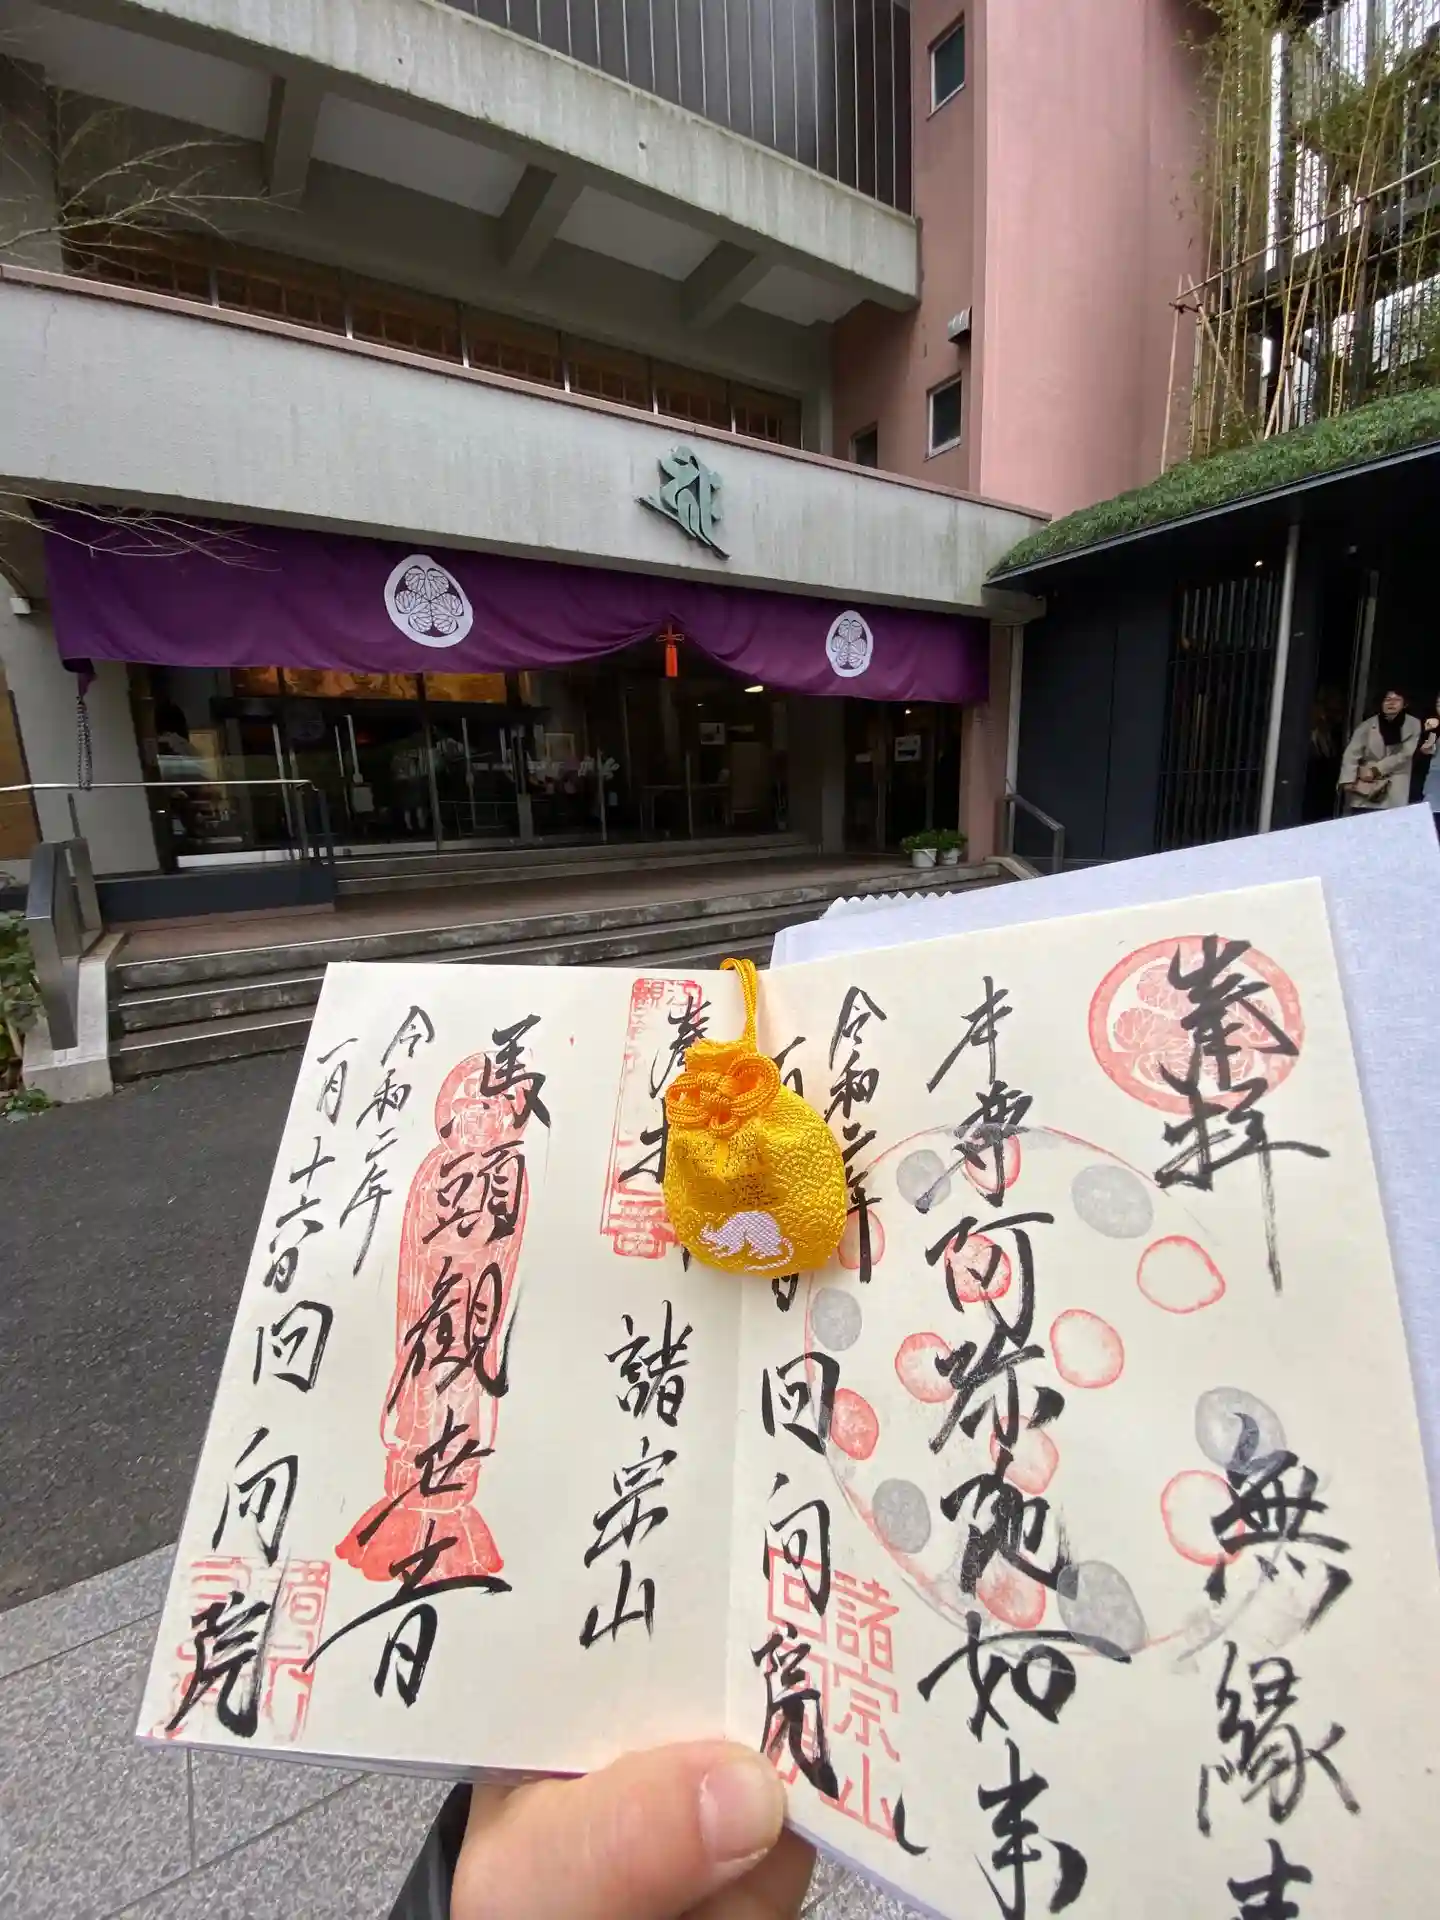 奉拝
無縁寺
本尊阿弥陀如来
令和二年
回向院
諸宗山
奉拝
諸宗山
馬頭観世音
令和二年
一月十六日
回向院